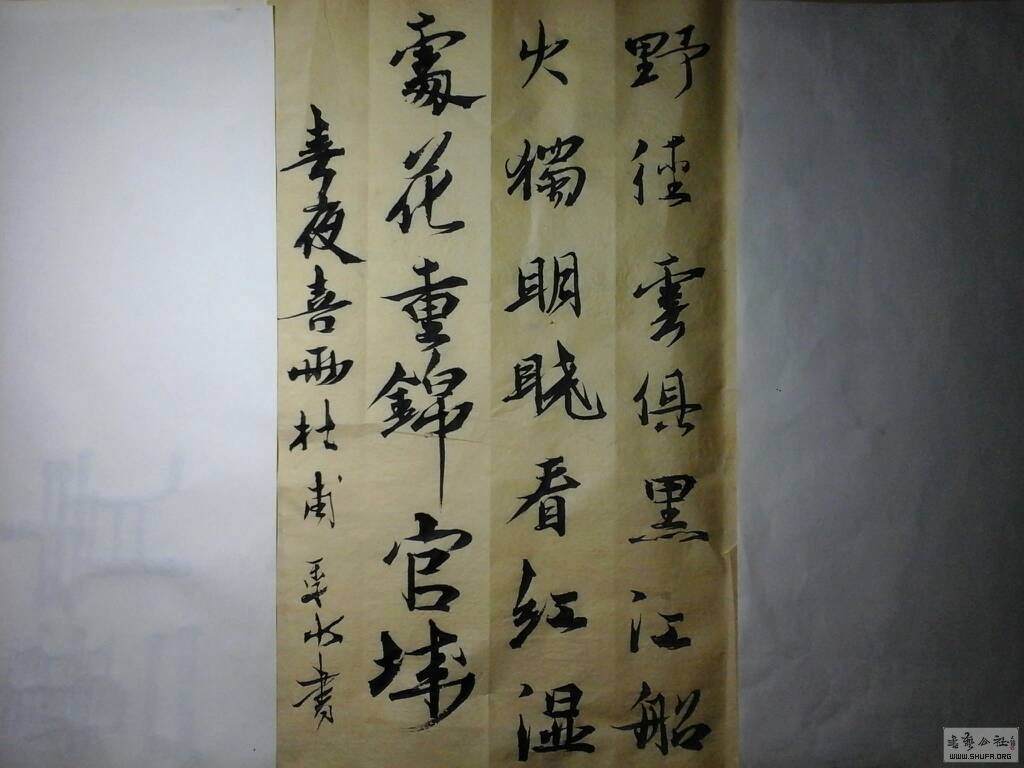 野徑雲俱黑江船
火獨明晓看紅湿
處花重錦官城
春夜喜雨杜甫 書
书艺公社
WWW.SHUFA.ORG